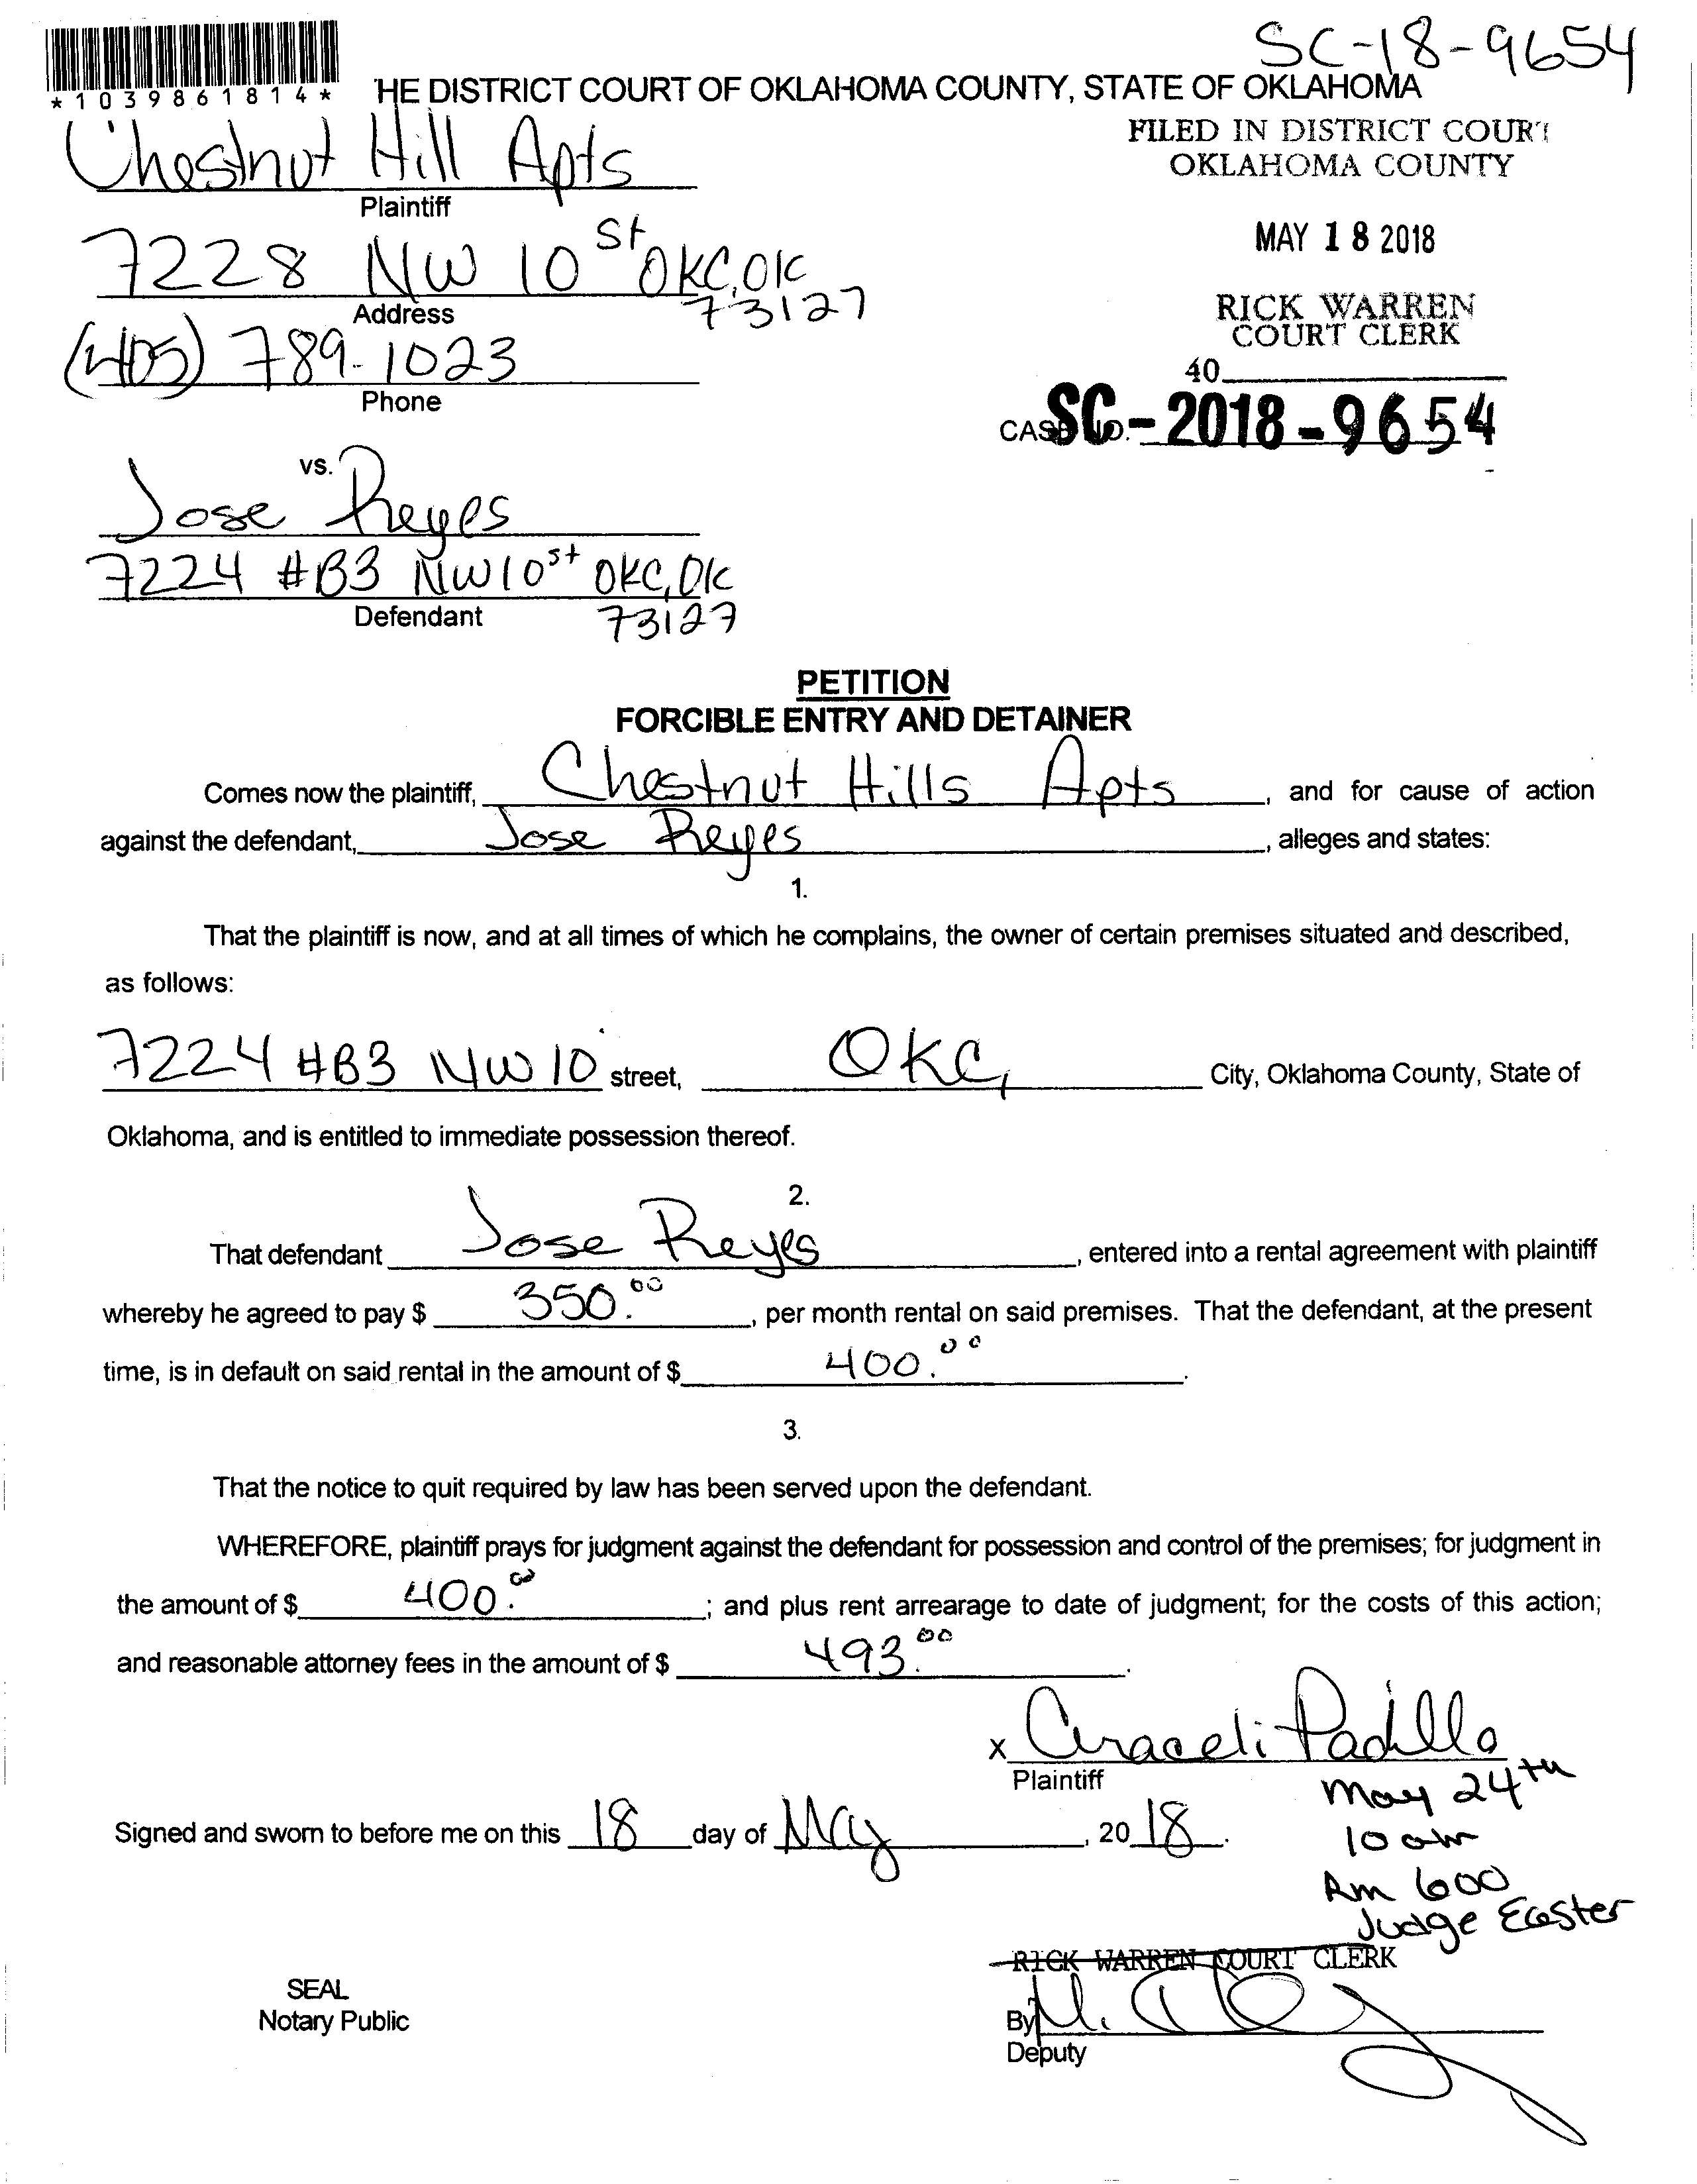 SC-18-9654
*1039861814*
HE DISTRICT COURT OF OKLAHOMA COUNTY, STATE OF OKLAHOMA
Chestnut Hill Apts
Plaintiff
FILED IN DISTRICT COURT
OKLAHOMA COUNTY
7228 NW 10 St OKC, OK
73127
Address
MAY 18 2018
(405) 789-1023
Phone
RICK WARREN
COURT CLERK
40
CASE NO. SC-2018-9654
vs.
Jose Reyes
7224 #B3 NW 10 st OKC, OK
73127
Defendant
PETITION
FORCIBLE ENTRY AND DETAINER
Comes now the plaintiff, Chestnut Hills Apts, and for cause of action
against the defendant, Jose Reyes, alleges and states:
1.
That the plaintiff is now, and at all times of which he complains, the owner of certain premises situated and described,
as follows:
7224 #B3 NW 10 street, OKC, City, Oklahoma County, State of
Oklahoma, and is entitled to immediate possession thereof.
2.
That defendant Jose Reyes, entered into a rental agreement with plaintiff
whereby he agreed to pay $ 350.00, per month rental on said premises. That the defendant, at the present
time, is in default on said rental in the amount of $ 400.00.
3.
That the notice to quit required by law has been served upon the defendant.
WHEREFORE, plaintiff prays for judgment against the defendant for possession and control of the premises; for judgment in
the amount of $ 400.00; and plus rent arrearage to date of judgment; for the costs of this action;
and reasonable attorney fees in the amount of $ 493.00.
x Araceli Padilla
Plaintiff
Signed and sworn to before me on this 18 day of May, 20 18.
May 24th
10 am
Rm 600
Judge Easter
RICK WARREN COURT CLERK
SEAL
Notary Public
By
Deputy